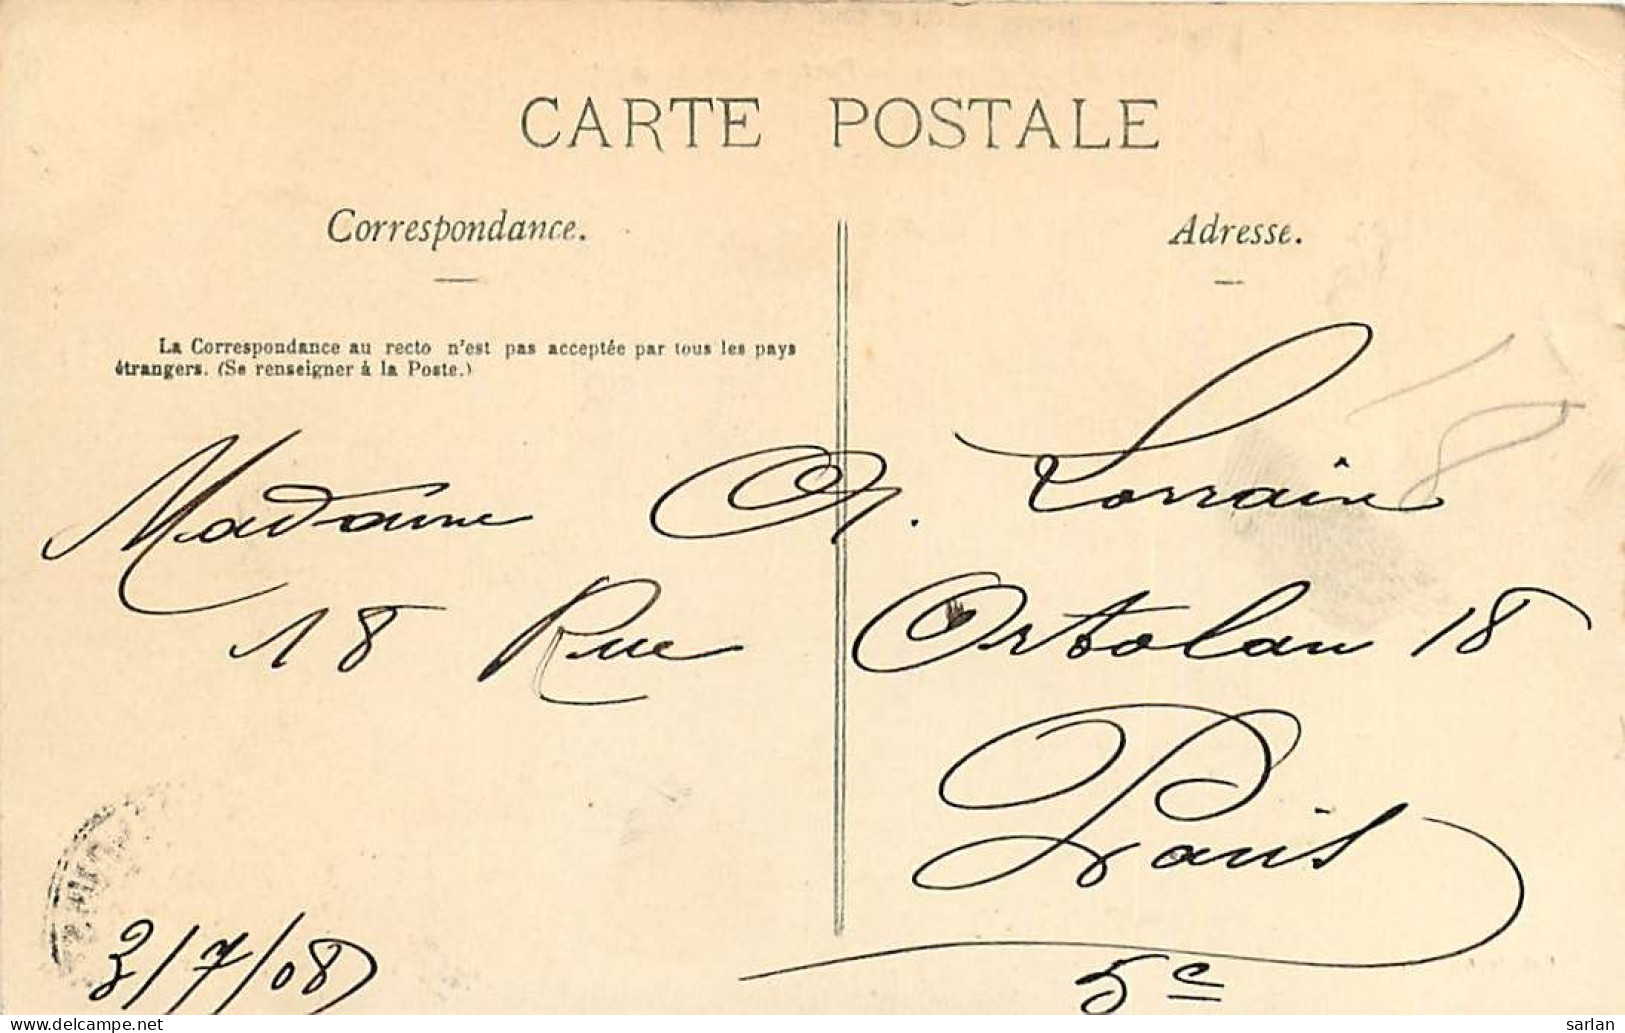 CARTE POSTALE
Correspondance.
Adresse.
La Correspondance au recto n'est pas acceptée par tous les pays
étrangers. (Se renseigner à la Poste.)
Madame A. Lorrain
18 Rue Ortolan 18
Paris
5e
3/7/08
sarlan